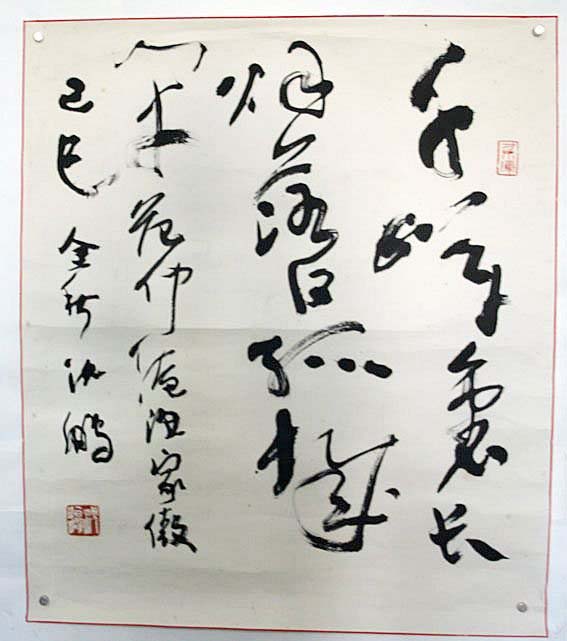 千嶂裏长
烟落日孤城
闭 范仲淹渔家傲
己巳 金秋 沈鹏